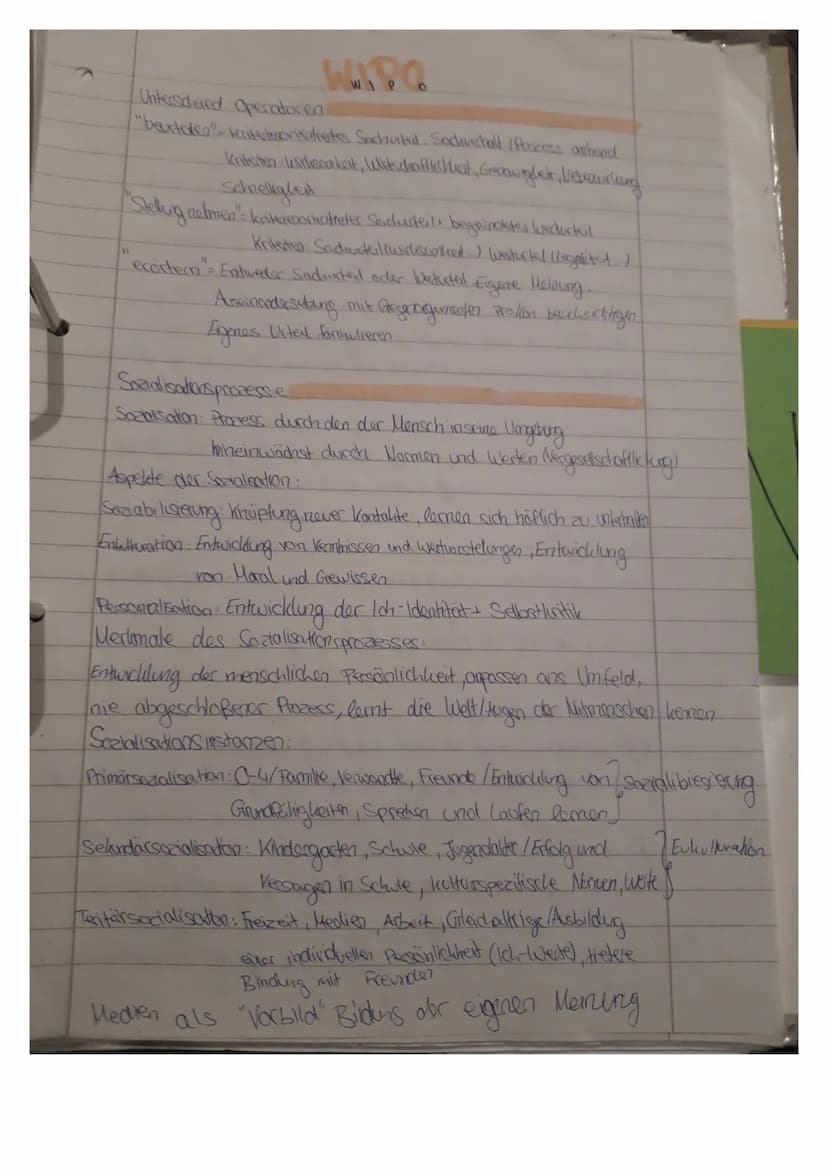 WIPO
W I P O
Unterschied Operatoren
"beurteilen"= kriterienorientiertes Sachurteil. Sachverhalt / Prozess anhand
Kriterien: Wirksamkeit, Wirtschaftlichkeit, Genauigkeit,
Schnelligkeit
"Stellung nehmen"= kriterienorientiertes Sachurteil + begründetes Werturteil
Kriterien: Sachurteil (Wirksamkeit) Werturteil (Legalität)
"erörtern"= Entweder Sachurteil oder Werturteil. Eigene Meinung.
Auseinandersetzung mit Gegenargumenten berücksichtigen
Eigenes Urteil formulieren
Sozialisationsprozesse
Sozialisation: Prozess durch den der Mensch in seine Umgebung
hineinwächst durch Normen und Werten (Vergesellschaftlichung)
Aspekte der Sozialisation:
Soziabilisierung: Knüpfung neuer Kontakte, lernen sich höflich zu unterhalten
Enkulturation: Entwicklung von Kenntnissen und Wertvorstellungen, Entwicklung
von Moral und Gewissen
Personalisation: Entwicklung der Ich-Identität + Selbstkritik
Merkmale des Sozialisationsprozesses:
Entwicklung der menschlichen Persönlichkeit, anpassen ans Umfeld,
nie abgeschloßener Prozess, lernt die Welt/Augen der Mitmenschen kennen
Sozialisationsinstanzen:
Primärsozialisation: 0-4/Familie, Verwandte, Freunde / Entwicklung von } Sozialibiesierung
Grundfähigkeiten, Sprechen und Laufen lernen
Sekundärsozialisation: Kindergarten, Schule, Jugendalter / Erfolg und } Eukulturation
Versagen in Schule, kulturspezifische Normen, Werte
Teritärsozialisation: Freizeit, Medien, Arbeit, Gleichaltrige/Ausbildung
einer individuellen Persönlichkeit (Ich-Werte), tiefere
Bindung mit Freunde?
Medien als "Vorbild" Bildung der eigenen Meinung